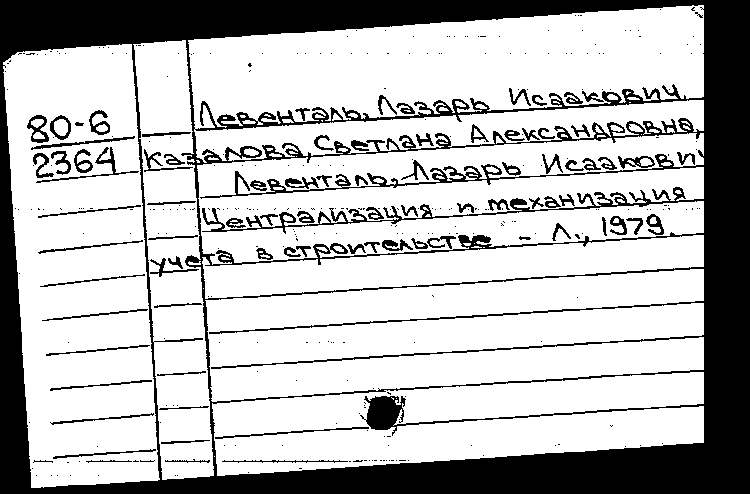 80-6
2364
Левенталь, Лазарь Исаакович.
Казалова, Светлана Александровна,
Левенталь, Лазарь Исаакович
Централизация и механизация
учета в строительстве - Л., 1979.